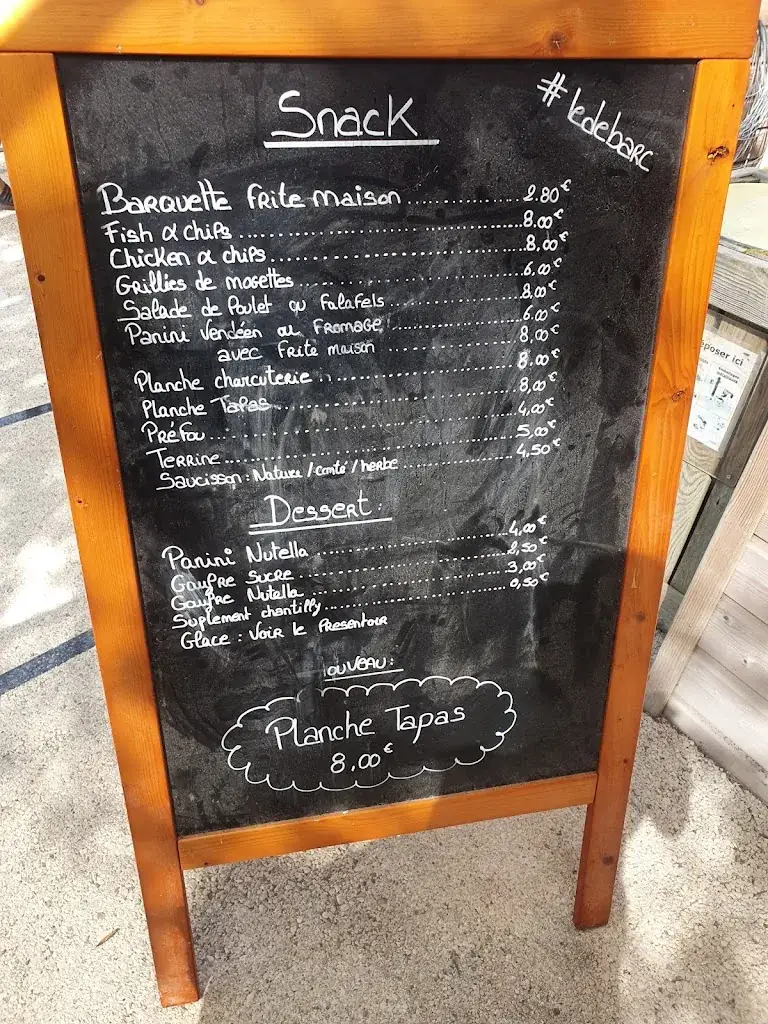 Snack
#ledebarc
Barquette frite maison 2.80€
Fish & chips 8.00€
Chicken & chips 8,00€
Grillies de mogettes 6.00€
Salade de Poulet ou Falafels 8,00€
Panini Vendéen ou FROMAGE 6.00€
avec frite maison 8,00€
Planche charcuterie 8.00€
Planche Tapas 8,00€
Préfou 4,00€
Terrine 5,00€
Saucisson : Nature / Comté / herbe 4,50€
Dessert :
Panini Nutella 4,00€
Gaufre Sucre 2,50€
Gaufre Nutella 3,00€
Suplement chantilly 0,50€
Glace : Voir le Presentoir
OUVEAU :
Planche Tapas
8.00€
poser ici